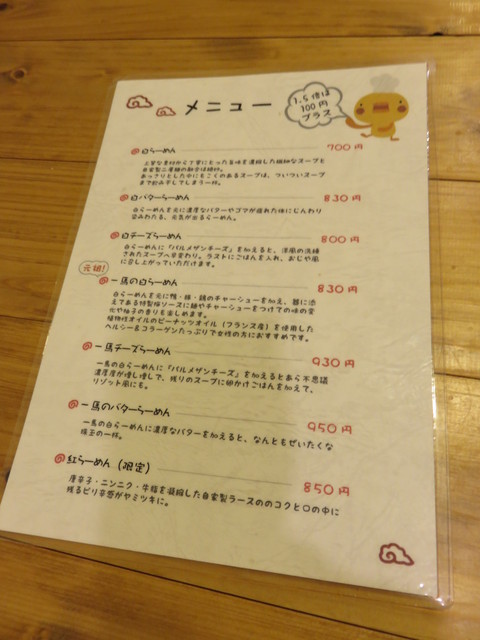 メニュー
1.5倍は
100円
プラス
白らーめん 700円
上質な素材から丁寧にとったる味を濃縮した繊細なスープと
自家製二層麺の融合は絶妙。
あっさりとした中にもこくのあるスープは、ついついスープ
まで飲み干してしまう一杯。
白バターらーめん 830円
白らーめんを元に濃厚なバターやゴマが疲れた体にじんわり
染みわたる、元気が出るらーめん。
白チーズらーめん 800円
白らーめんに『パルメザンチーズ』を加えると、洋風の洗練
されたスープへ早変わり。ラストにごはんを入れ、おじや風
に召し上がっていただけます。
元祖!
一馬の白らーめん 830円
白らーめんを元に鴨・豚・鶏のチャーシューを加え、器に添
えである特製柚ソースに麺やチャーシューをつけての味の変
化や柚子の香りを楽しめます。
植物性オイルのピーナッツオイル(フランス産)を使用した
ヘルシー&コラーゲンたっぷりで女性の方におすすめです。
一馬チーズらーめん 930円
一馬の白らーめんに『パルメザンチーズ』を加えるとあら不思議
濃厚度が増し増しで、残りのスープに卵かけごはんを加えて、
リゾット風にも。
一馬のバターらーめん 950円
一馬の白らーめんに濃厚なバターを加えると、なんともぜいたくな
珠玉の一杯。
紅らーめん(限定) 850円
唐辛子・ニンニク・牛脂を凝縮した自家製ラースののコクと〇の中に
残るピリ辛感がヤミツキに。